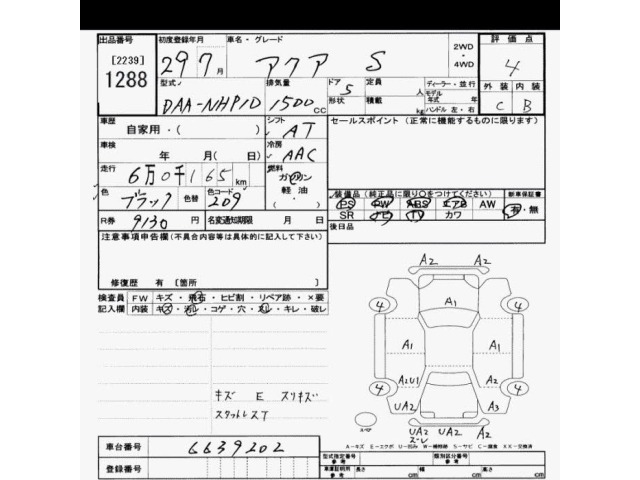 出品番号 初度登録年月 車名・グレード 2WD・4WD 評価点
[2239] 29 7月 アクア S 4
1288 型式 排気量 ドア 5 定員 人 ディーラー・並行 外装 内装
DAA-NHP10 1500cc 形状 積載 kg モデル年式 年 C B
ハンドル 左・右
車歴 シフト セールスポイント (正常に機能するものに限ります)
自家用・( ) AT
車検 年 月(日) 冷房 AAC
走行 6万0千165km 燃料 ガソリン
軽油
装備品(純正品に限り○をつけてください) 新車保証書
色 ブラック 色替 色コード 209 PS PW ABS エアB AW 有・無
SR ナビ TV カワ
R券 9130 名変通知期限 月 日 後日品
注意事項申告欄(不具合内容等は具体的に記入して下さい)
修復歴 有 [箇所
検査員 FW キズ・飛石・ヒビ割・リペア跡・×要
記入欄 内装 キズ・汚レ・コゲ・穴・ヌレ・キレ・破レ
A2 A2
4 A1 4
A1 A1
A2U1 A2
4 4
UA2 A3
キズ E スリキズ
スペア UA2 UA2 A2
A-キズ E-エクボ U-凹み W-補修跡 S-サビ C-腐食 XX-交換済
車台番号 6639202
型式指定番号 参考 類別区分番号 参考
登録番号 車庫証明用 参考 長さ cm 幅 cm 高さ cm